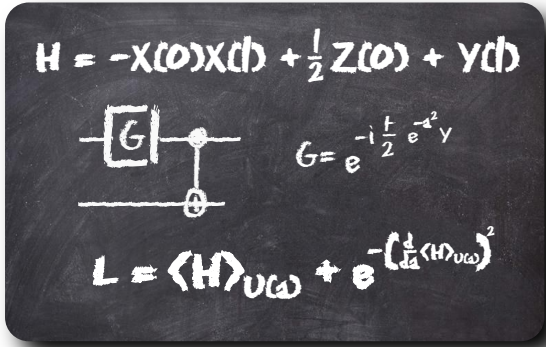 H = -X(0)X(1) + 1/2 Z(0) + Y(1)
G
G = e^{-i 1/2 e^{-a^2} Y}
L = ⟨H⟩_{U(a)} + e^{-(d/da ⟨H⟩_{U(a)})^2}